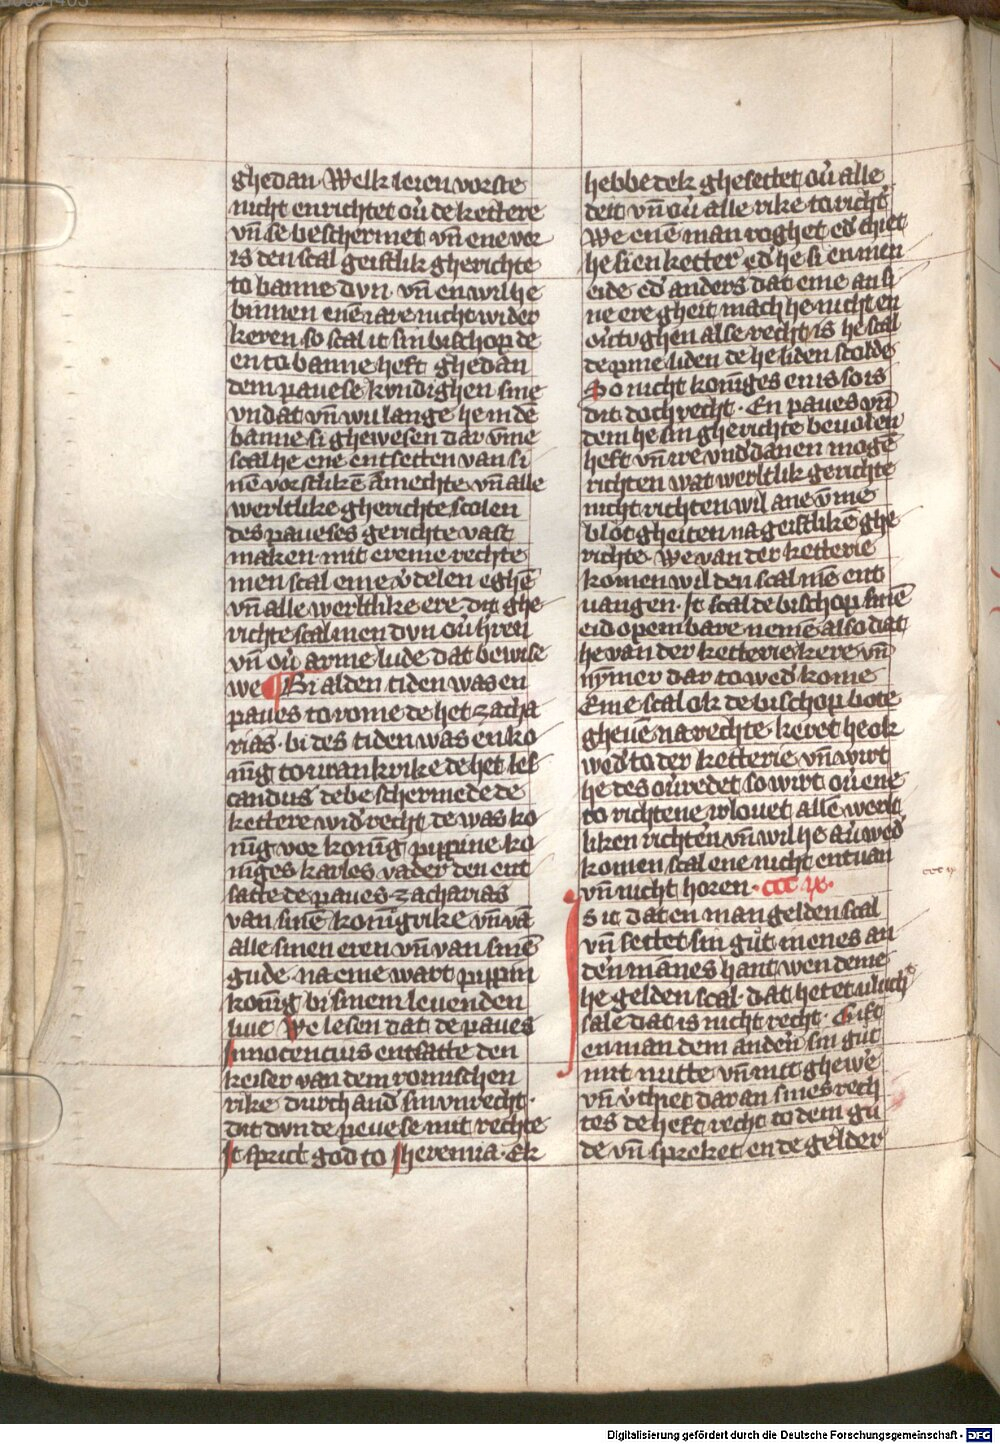 ghedan. Welk leien vorste
nicht enrichtet ou̇ de kettere
vn̄ se beschermet vn̄ ene vor
is den scal geistlik gherichte
to banne dvn. vn̄ en wil he
binnen eneme iare nicht wider
keren so scal it sin bischop de
en to banne heft ghedan
dem pauese kvndighen sine
vndat vn̄ wu lange he in dē
banne si ghewesen dar v̄me
scal he ene entsetten van si
nē vorstlikē āmechte vn̄ alle
werltlike gherichte scolen
des paueses gerichte vast
maken. mit ereme rechte
men scal eme v̇delen eghē
vn̄ alle werltlike ere. dit ghe
richte scal men dvn ou̇ hren
vn̄ ou̇ arme lude dat bewise
we Bi alden tiden was en
paues to rome de het zacha
rias. bi des tiden was en ko
nīg to vrankrike de het les
candus de beschermede de
kettere wid̕ recht de was ko
nīg vor konīg pippine ko
niges karles vader den ent
satte de paues zacharias
van sinē konīgrike vn̄ vā
alle sinen eren vn̄ van sinē
gude. na eme wart pippin
konīg bi sinem leuenden
liue We lesen dat de paues
Innocentius entsatte den
keiser van dem romischen
rike. durch and̕ sin vnrecht.
dit dvn de peuese mit rechte
It sprict god to Iheremia. Ek
hebbe dek ghesettet ou̇ alle
deit vn̄ ou̇ alle rike to richt̕
We enē man roghet ed̕ chiet
he si en ketter ed̕ he si en men
eide ed̕ anders dat eme an si
ne ere gheit mach he nicht en
ou̇tvghen alse recht is he scal
de pine liden de he liden scolde
So nicht koniges en is so is
dit doch recht. En paues vn̄
dem he sin gherichte beuolen
heft vn̄ ire vnd̕danen mogē
richten wat werltlik gerichte
nicht richten wil ane v̄me
blotgheiten na geistlikē ghe
richte. We van der ketterie
komen wil den scal mē ent
uangen. It scal de bischop sinē
eid openbare nemē also dat
he van der ketterie kere vn̄
nv̄mer dar to wed̕ kome
Eme scal ok de bischop bote
gheuē na rechte. keret he ok
wed̕ to der ketterie vn̄ wirt
he des ou̇redet so wirt ou̇ ene
to richtene irlouet allē werlt
liken richtern̄ vn̄ wil he au̇ wed̕
komen scal ene nicht entuan
vn̄ nicht horen. ccc ix.
ccc ix
Is it dat en man gelden scal
vn̄ settet sin gu̇t in enes an
dern mannes hant wen deme
he gelden scal. dat hetet vlucht
sale dat is nicht recht. Gift
en man dem andern̄ sin gu̇t
mit nutte vn̄ mit ghewe
vn̄ v̇thiet dar an sines rech
tes de heft recht to dem gu
de vn̄ spreket en de gelder
Digitalisierung gefördert durch die Deutsche Forschungsgemeinschaft - DFG